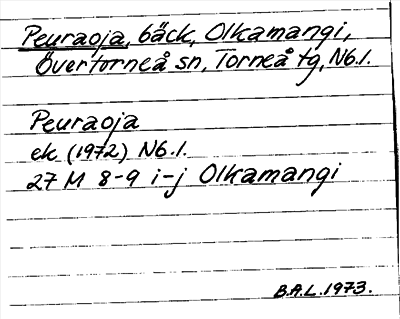 Peuraoja, bäck, Olkamangi,
Övertorneå sn, Torneå tg, Nb.l.
Peuraoja
ek (1972) Nb.l.
27 M 8-9 i-j Olkamangi
B.A.L. 1973.